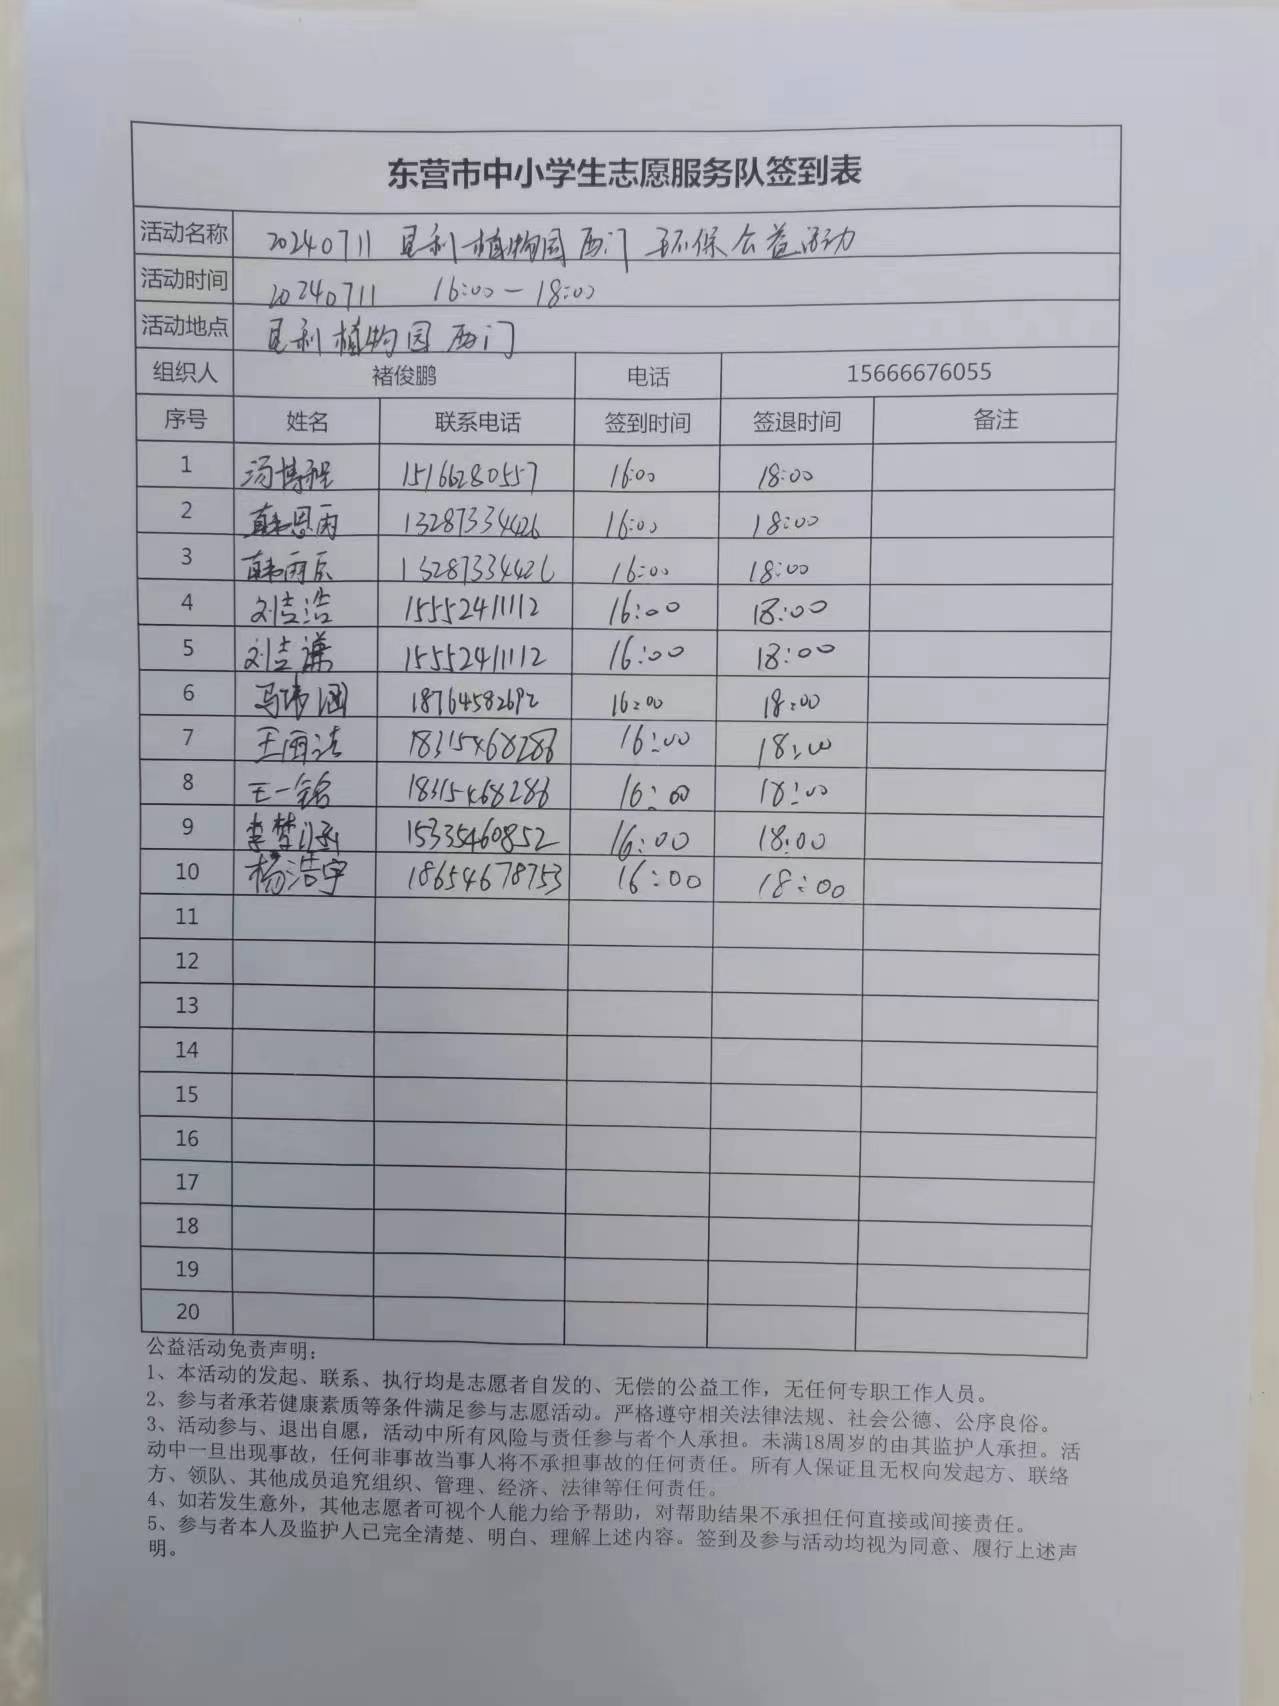 东营市中小学生志愿服务队签到表
活动名称 20240711 垦利植物园西门环保公益活动
活动时间 20240711 16:00-18:00
活动地点 垦利植物园西门
组织人 褚俊鹏 电话 15666676055
序号 姓名 联系电话 签到时间 签退时间 备注
1 汤博程 15166280557 16:00 18:00
2 韩恩雨 13287334426 16:00 18:00
3 韩雨辰 13287334426 16:00 18:00
4 刘吉浩 15552411112 16:00 18:00
5 刘吉谦 15552411112 16:00 18:00
6 18764582692 16:00 18:00
7 18315468286 16:00 18:00
8 王一铭 18315468286 16:00 18:00
9 李梦涵 15335460852 16:00 18:00
10 杨浩宇 18654678753 16:00 18:00
11
12
13
14
15
16
17
18
19
20
公益活动免责声明：
1、本活动的发起、联系、执行均是志愿者自发的、无偿的公益工作，无任何专职工作人员。
2、参与者承若健康素质等条件满足参与志愿活动。严格遵守相关法律法规、社会公德、公序良俗。
3、活动参与、退出自愿，活动中所有风险与责任参与者个人承担。未满18周岁的由其监护人承担。活
动中一旦出现事故，任何非事故当事人将不承担事故的任何责任。所有人保证且无权向发起方、联络
方、领队、其他成员追究组织、管理、经济、法律等任何责任。
4、如若发生意外，其他志愿者可视个人能力给予帮助，对帮助结果不承担任何直接或间接责任。
5、参与者本人及监护人已完全清楚、明白、理解上述内容。签到及参与活动均视为同意、履行上述声
明。